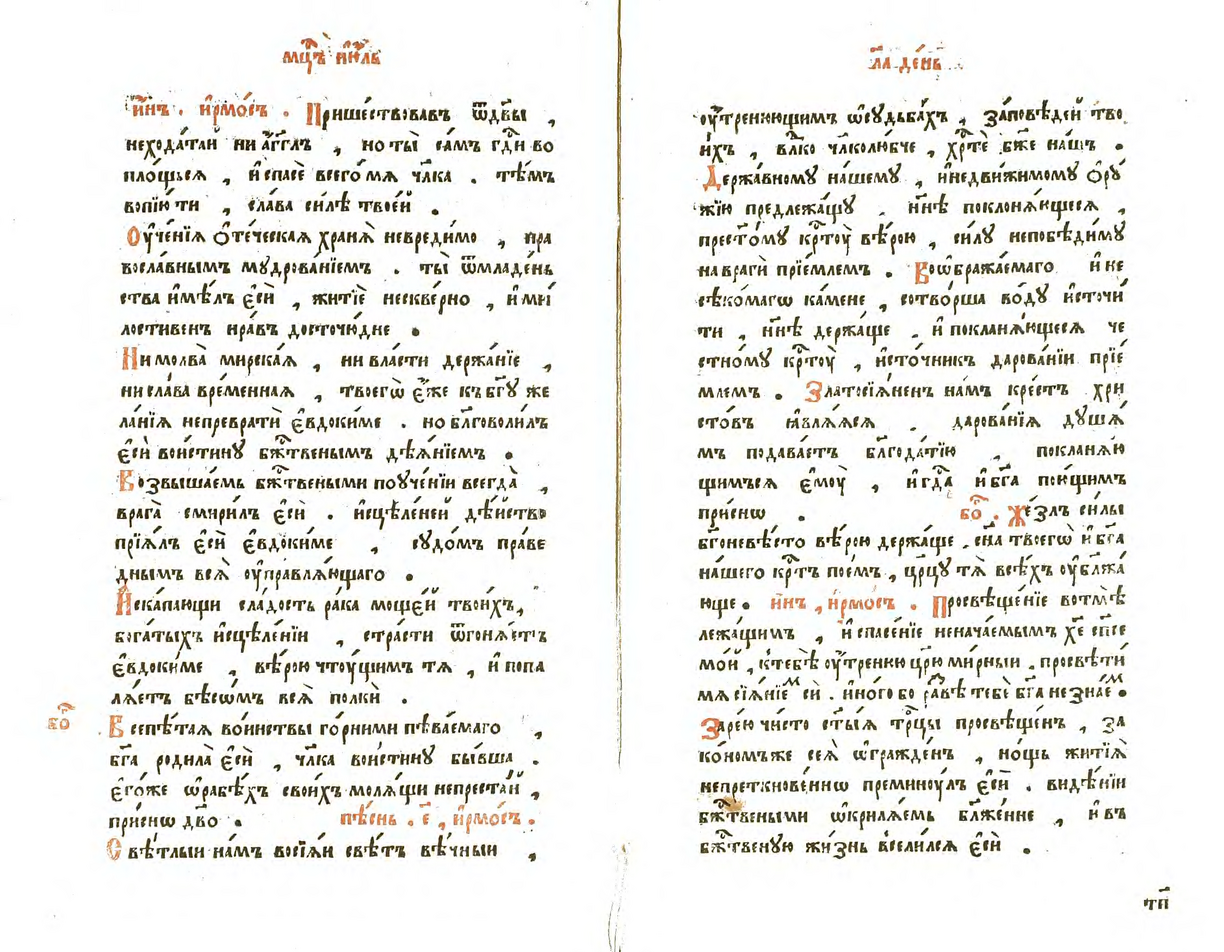 мц҃ъ і҆ю́ль
и҆́нъ . і҆рмо́съ . Пришéствовавъ ѿдв҃ы ,
неходáтаи ни а҆́гг҃лъ , но ты̀ сáмъ гд҃и во
плóщься , и҆ спасѐ всего̀ мѧ̀ чл҃ка . тѣ́мъ
вопїю́ ти , слáва си́лѣ твоéй .
Оу҆чéнїѧ ѻ҆тéческаѧ хранѧ̀ невреди́мо , пра
вослáвнымъ мꙋдровáнїемъ . ты̀ ѿмладéнь
ства и҆мѣ́лъ є҆сѝ , житїѐ несквéрно , и҆ ми́
лостивенъ нрáвъ досточю́дне .
Ни молвà мирскáѧ , ни влáсти держáнїе ,
ни слáва врéменнаѧ , твоегѡ̀ є҆́же къ бг҃ꙋ же
лáнїѧ непревратѝ є҆вдоки́ме . но бл҃говоли́лъ
є҆сѝ вои́стинꙋ бж҃твенымъ дѣѧ́нїемъ .
Возвышáемь бж҃твеными поꙋчéнїи всегдà ,
врагà смири́лъ є҆сѝ . и҆сцѣлéней дѣ́йство
прїѧ́лъ є҆сѝ є҆вдоки́ме , сꙋдóмъ прáве
днымъ всѧ̀ оу҆правлѧ́ющаго .
Искáпающи слáдость рáка мощéй твои́хъ,
богáтыхъ и҆сцѣлéнїи , стрáсти ѿгонѧ́етъ
є҆вдоки́ме , вѣ́рою чтоу́щимъ тѧ , и҆ попа
лѧ́етъ бѣсѡ́мъ всѧ̀ полкѝ .
бо҃
Всепѣ́таѧ вóинствы гóрними пѣвáемаго ,
бг҃а родилà є҆сѝ , чл҃ка вои́стинꙋ бы́вша .
є҆гóже ѡ҆рабѣ́хъ свои́хъ молѧ́щи непрестáй ,
при́снѡ дв҃о . пѣ́снь . є҃ , і҆рмóсъ .
Свѣ́тлыи нáмъ восїѧ́и свѣ́тъ вѣ́чныи ,
л҃а дéнь
оу҆́тренюющимъ ѡ҆сꙋдьбáхъ , зáповѣдей тво
и҆́хъ , вл҃ко чл҃колю́бче , хр҃тѐ бж҃е нáшъ .
Держáвномꙋ нáшемꙋ , и҆недви́жимомꙋ ѻ҆рꙋ́
жїю предлежáщꙋ . нн҃ѣ поклонѧ́ющесѧ ,
прест҃óмꙋ кр҃тоу̀ вѣ́рою , си́лꙋ непобѣди́мꙋ
на врагѝ прїéмлемъ . Воѡ҆бражáемаго и҆ не
сѣкóмагѡ кáмене , сотвóрша вóдꙋ и҆сточи́
ти , нн҃ѣ держáще , и҆ покланѧ́ющесѧ че
стнóмꙋ кр҃тоу̀ , и҆стóчникъ даровáнїи прїé
млемъ . Златосїѧ́ненъ нáмъ крéстъ хри
стóвъ ꙗ҆влѧ́ѧсѧ . даровáнїѧ дꙋшѧ́
мъ подавáетъ бл҃годáтїю , покланѧ́ю
щимъсѧ є҆моу̀ , и҆ гд҃а и҆ бг҃а пою́щимъ
при́снѡ . бо҃ . Жéзлъ си́лы
бг҃оневѣ́сто вѣ́рою держáще , сн҃а твоегѡ̀ и҆ бг҃а
нáшего кр҃тъ поéмъ , цр҃цꙋ тѧ̀ всѣ́хъ оу҆блажá
юще . и҆́нъ , і҆рмóсъ . Просвѣщéнїе вотмѣ̀
лежáщимъ , и҆ спасéнїе неначáемымъ хе҃ сп҃се
мóй , к тебѣ̀ оу҆́треннюю цр҃ю ми́рныи . просвѣтѝ
мѧ сїѧ́нїемъ сѝ . и҆нóго бо рáзвѣ тебѐ бг҃а не знáем .
Зарéю чи́сто ст҃ыѧ трⷪ҇цы просвѣщéнъ , за
кóномъже сеѧ̀ ѡ҆граждéнъ , нóщь житїѧ̀
непреткновéннѡ преминоу́лъ є҆сѝ . видѣ́нїи
бж҃твеными ѡ҆крилѧ́емь блажéнне , и҆ въ
бж҃твенꙋю жи́знь всели́лсѧ є҆сѝ .
тп҃